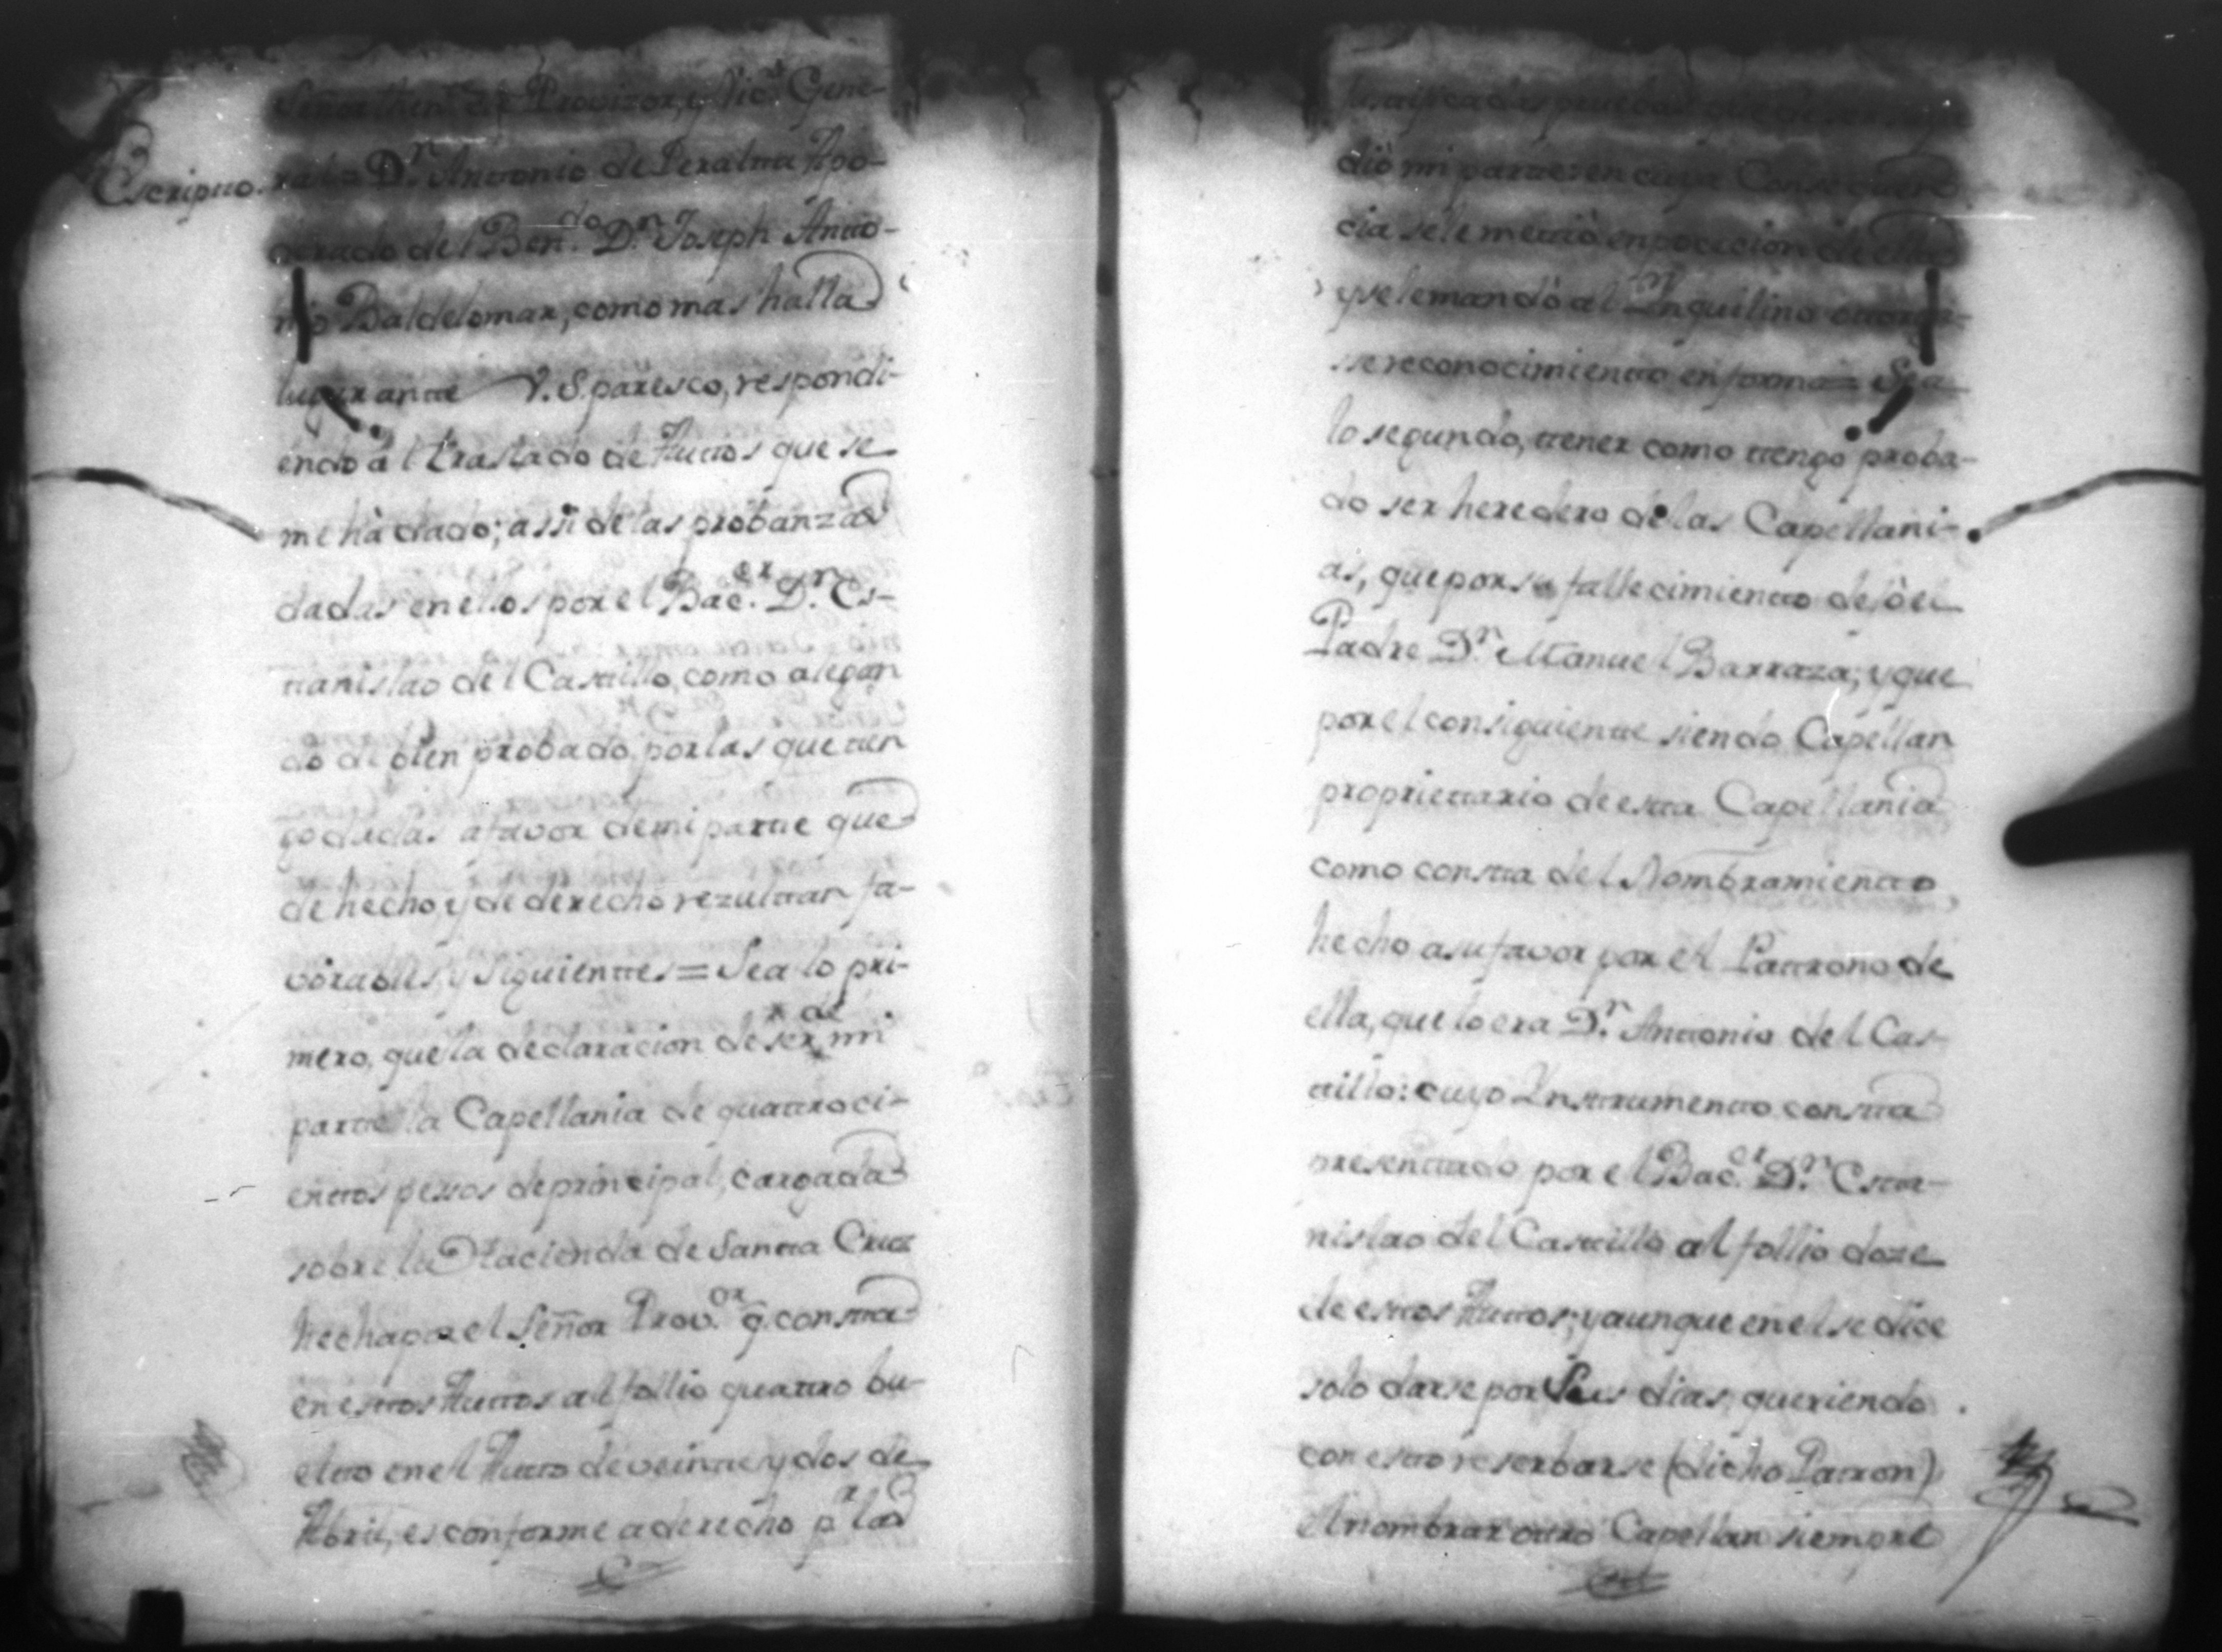 Señor then.te de Provizor, y Vic.o Gene-
Escripto. ral = D.n Antonio de Peralta Apo-
derado del Ben.do D.n Joseph Anto-
nio Baldelomar, como mas halla
lugar ante V.S. paresco, respondi-
endo al traslado de Auttos que se
me hà dado; assi de las probanzas
dadas en ellos por el Bac.er D.n Es-
tanislao del Castillo, como alegan
do de bien probado, por las que ten
go dadas a favor de mi parte que
de hecho, y de derecho rezultan fa-
vorables, y siguientes = Sea lo pri-
mero, que la declaracion de ser de mi
parte la Capellania de quatroci-
entos pessos de principal, cargada
sobre la Hacienda de Santa Cruz
hecha por el Señor Prov.or q. consta
en estos Auttos al follio quatro bu-
elto en el Autto de veinte y dos de
Abril, es conforme a derecho p.r las
diò mi parte: en cuya Consequen-
cia se le mettiò en pocecion de ella
y se le mandò al Inquilino otorga-
sse reconocimiento en forma = Sea
lo segundo, tener como tengo proba-
do ser heredero de las Capellani-
as, que por su fallecimiento dejò el
Padre D.n Manuel Barraza; y que
por el consiguiente siendo Capellan
proprietario de esta Capellania
como consta del Nombramiento
hecho a su favor por el Patrono de
ella, que lo era D.n Antonio del Cas-
tillo: cuyo Instrumento consta
presentado por el Bac.er D.n Esta-
nislao del Castillo al follio doze
de estos Auttos; y aunque en el se dice
solo darse por Seis dias, queriendo
con esto reserbarse (dicho Patron)
el nombrar otro Capellan siempre